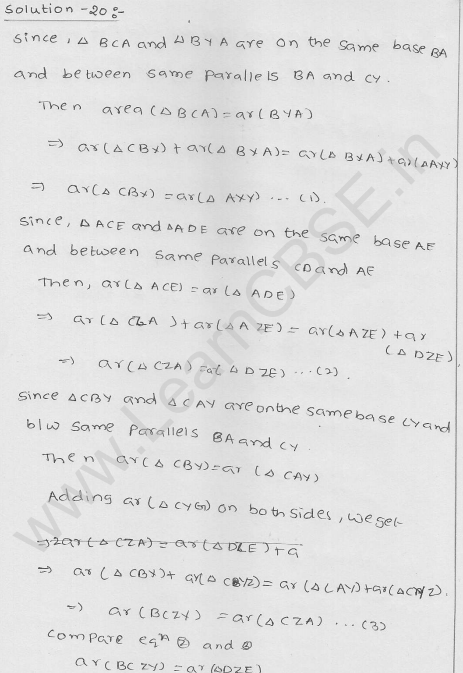 Solution -20 :-
Since, △ BCA and △ BYA are on the same base BA
and between same parallels BA and CY.
Then area (△BCA) = ar(BYA)
⇒ ar(△CBX) + ar(△ BXA) = ar(△ BXA) + ar(△AXY)
⇒ ar(△ CBX) = ar(△ AXY) ... (1).
Since, △ACE and △ADE are on the same base AE
and between same parallels CD and AE
Then, ar(△ ACE) = ar(△ ADE)
⇒ ar(△ CZA) + ar(△ AZE) = ar(△AZE) + ar
(△DZE)
⇒ ar(△ CZA) = a(△DZE) ... (2).
Since △CBY and △CAY are on the same base CY and
b/w same parallels BA and CY
Then ar(△ CBY) = ar (△ CAY)
Adding ar(△CYG) on both sides, we get
⇒ 2ar(△ CZA) = ar(△DZE) + a
⇒ ar(△CBX) + ar(△ CYZ) = ar(△CAY) + ar(△CYZ).
⇒ ar(BCZY) = ar(△CZA) ... (3)
Compare eqn ② and ③
ar(BCZY) = ar(△DZE)
www.LearnCBSE.in